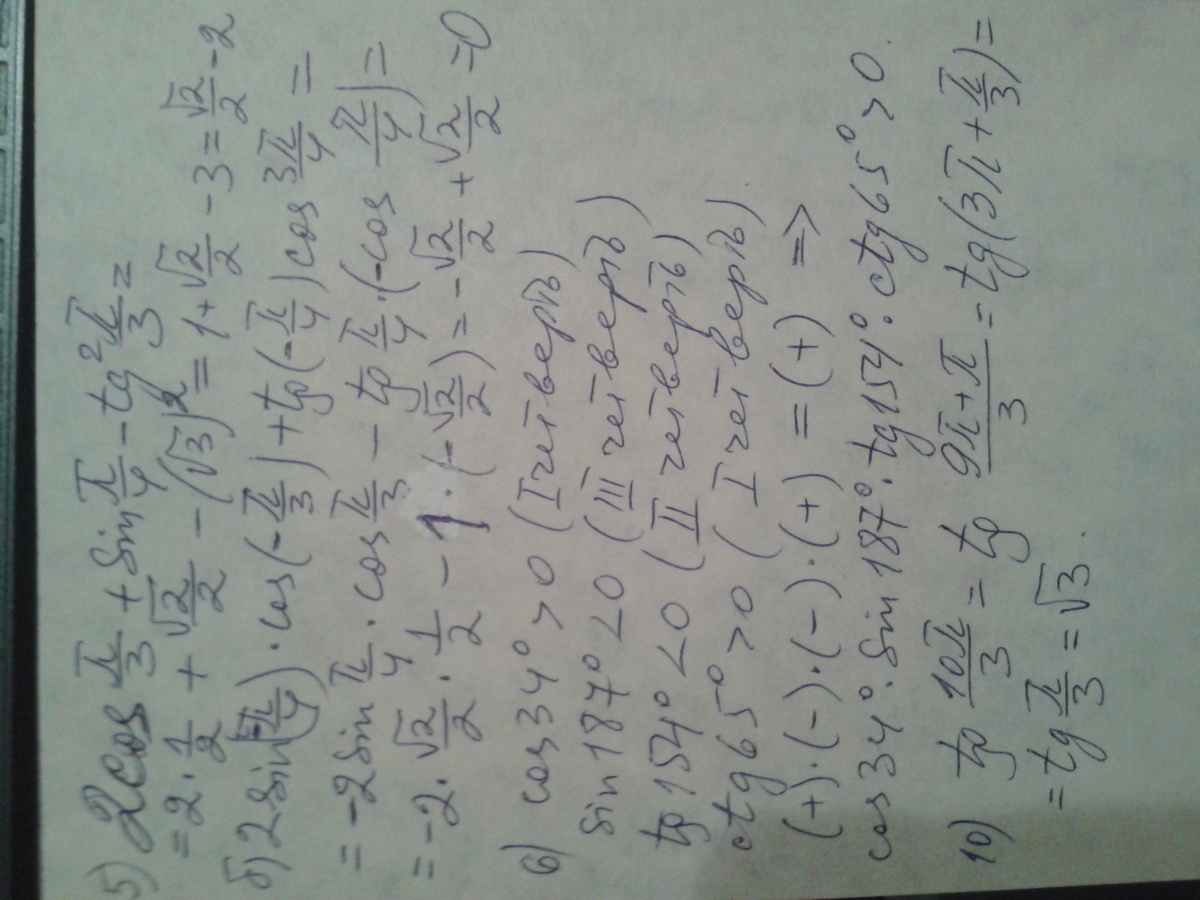 5) 2cos π/3 + sin π/4 - tg² π/3 =
= 2 · 1/2 + √2/2 - (√3)² = 1 + √2/2 - 3 = √2/2 - 2
б) 2sin(-π/4) · cos(-π/3) + tg(-π/4) cos 3π/4 =
= -2sin π/4 · cos π/3 - tg π/4 · (-cos π/4) =
= -2 · √2/2 · 1/2 - 1 · (-√2/2) = -√2/2 + √2/2 = 0
6) cos 34° > 0 (I четверть)
sin 187° < 0 (III четверть)
tg 154° < 0 (II четверть)
ctg 65° > 0 (I четверть)
(+)·(-)·(-)·(+) = (+) =>
cos 34° · sin 187° · tg 154° · ctg 65° > 0.
10) tg 10π/3 = tg 9π+π/3 = tg(3π + π/3) =
= tg π/3 = √3.